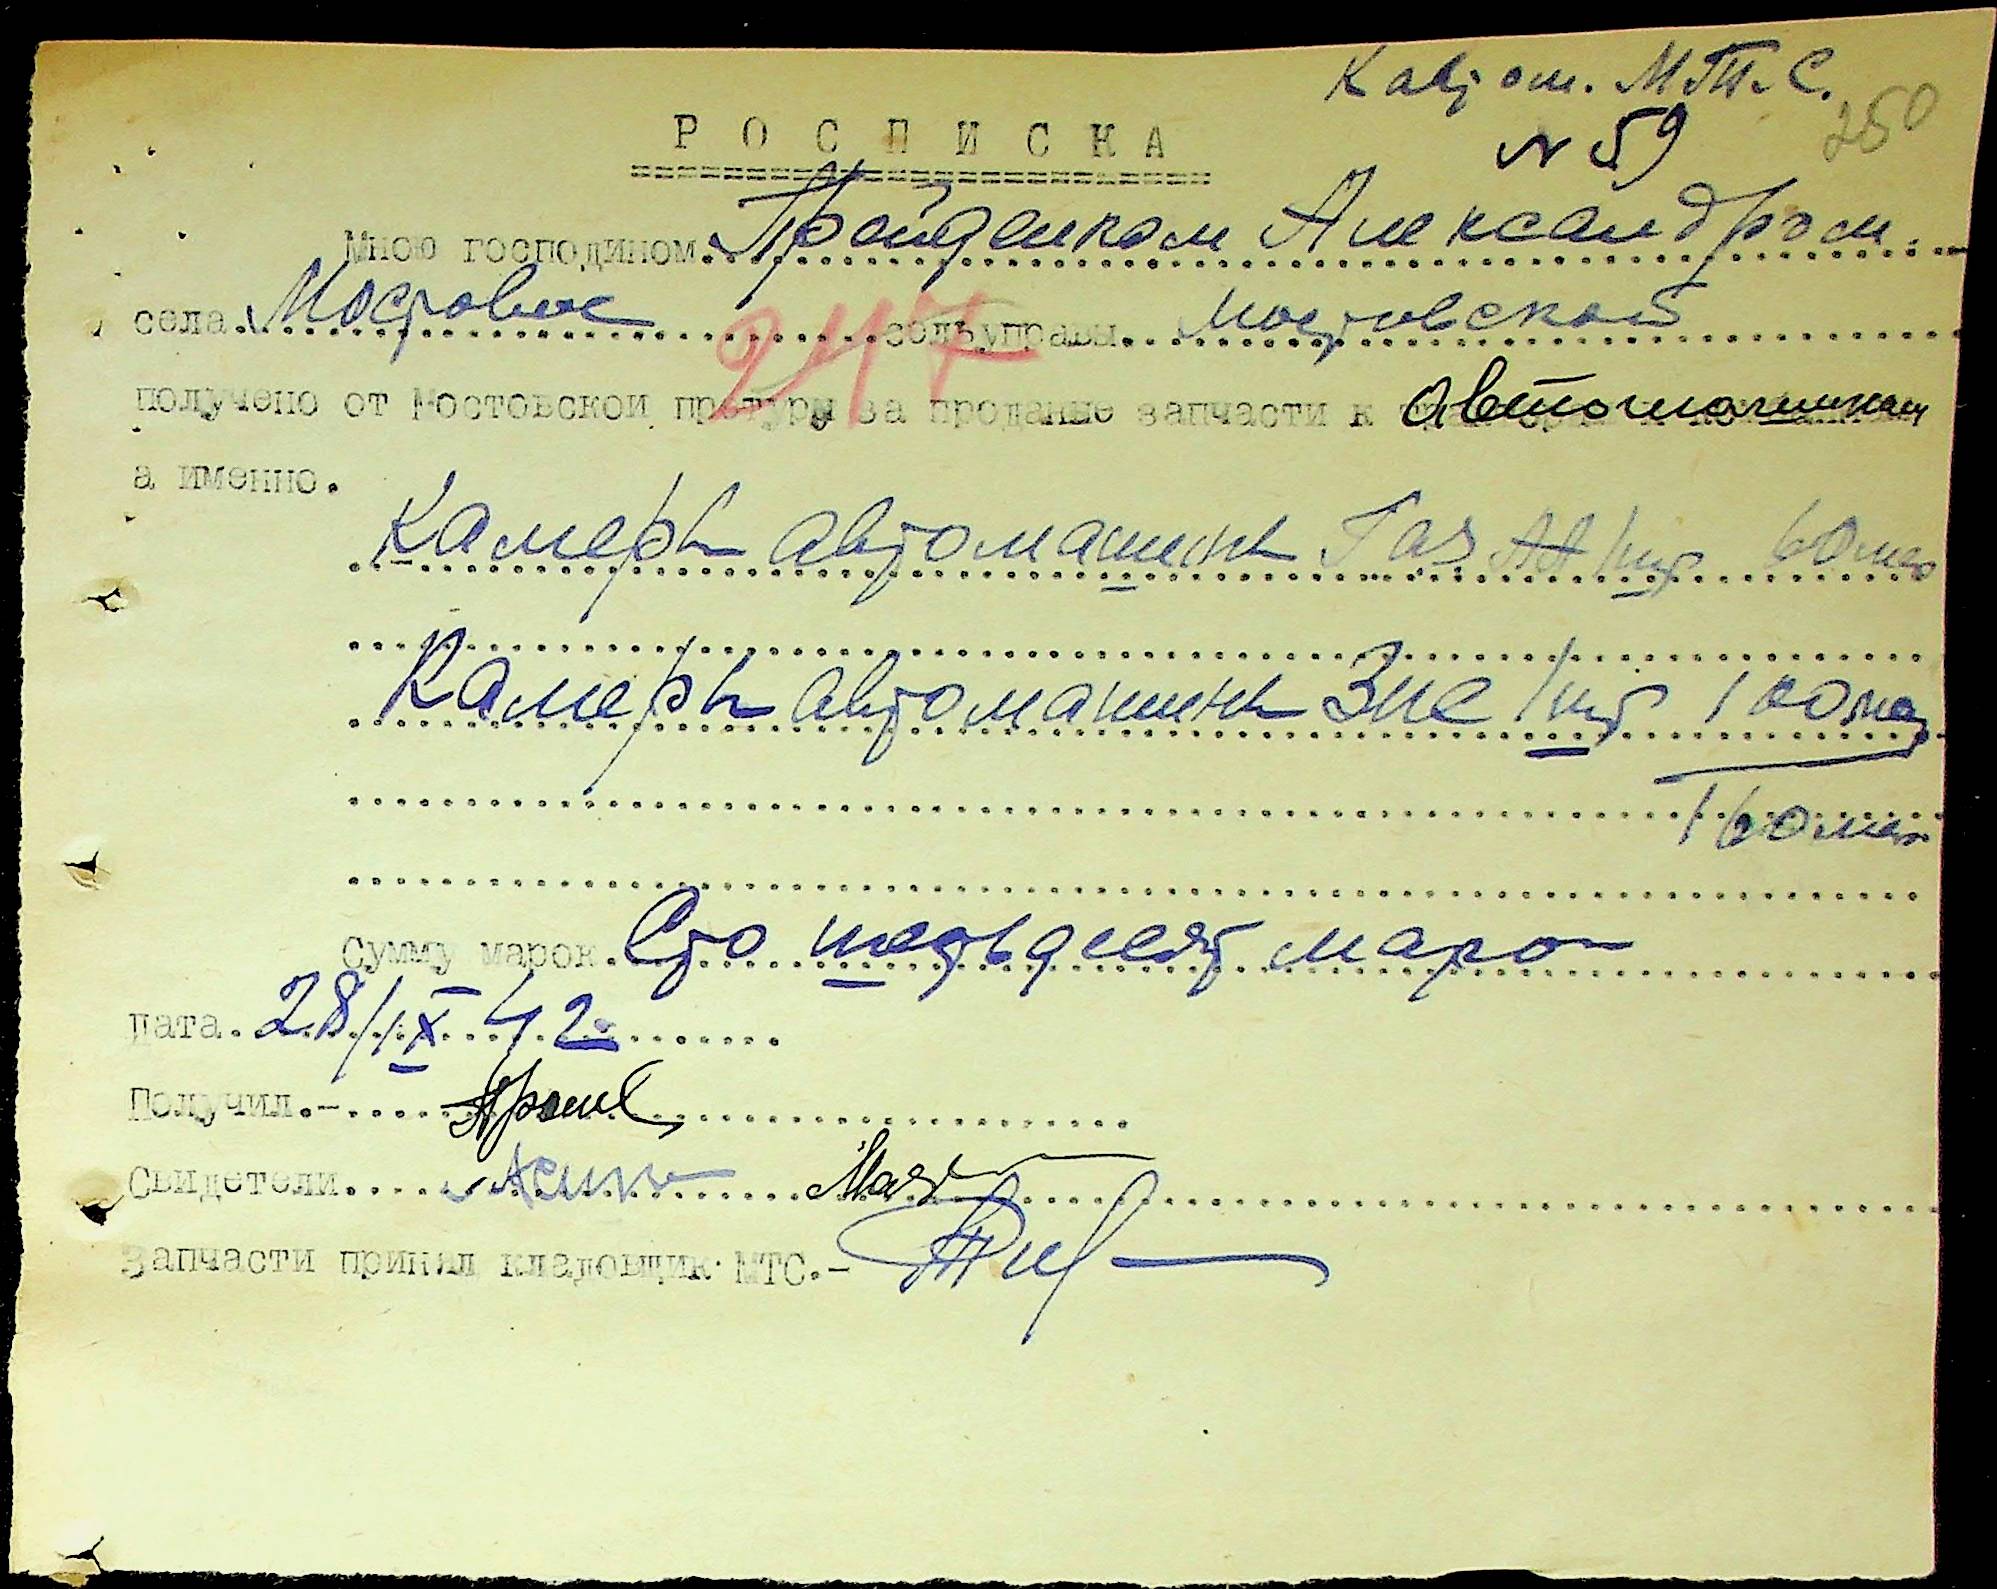 М.Т.С.
250
№ 59
РОСПИСКА
Мною господином Александром
села Мостовое сельуправы Мостовской
247
получено от Мостовской претуры за проданые запчасти к автомашинам
а именно.
Камеры автомашины Газ АА 1 шт 60 мар
Камеры автомашины Зис 1 шт 100 мар
160 мар
Сумму марок. Сто шестьдесят марок
Дата. 28/IX 42
Получил.-
Свидетели
Запчасти принял кладовщик МТС.-